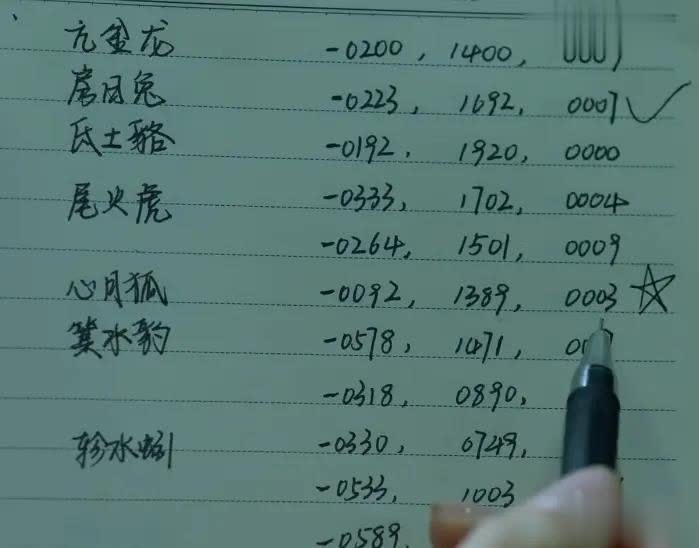 亢金龙 -0200, 1400,
房日兔 -0223, 1692, 0007
氐土貉 -0192, 1920, 0000
尾火虎 -0333, 1702, 0004
-0264, 1501, 0009
心月狐 -0092, 1389, 0003
箕水豹 -0578, 1471,
-0318, 0890,
轸水蚓 -0330, 0749,
-0533, 1003
-0589,